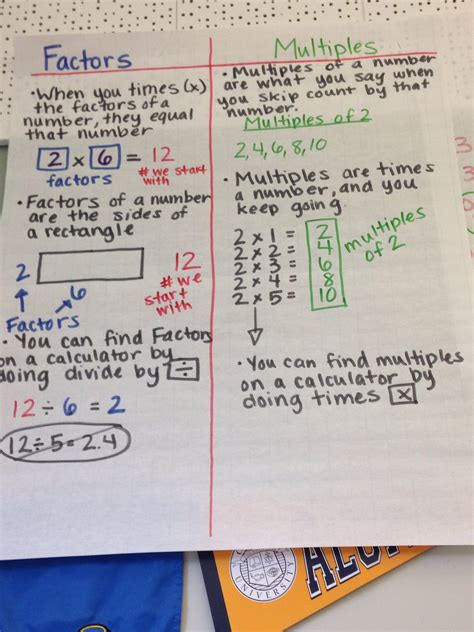 Factors
• When you times (x)
the factors of a
number, they equal
that number
2 x 6 = 12
factors
# we start
with
• Factors of a number
are the sides of
a rectangle
2
12
# we
start
with
6
Factors
• You can find Factors
on a calculator by
doing divide by ÷
12 ÷ 6 = 2
12÷5=2.4
Multiples
• Multiples of a number
are what you say when
you skip count by that
number.
Multiples of 2
2, 4, 6, 8, 10
• Multiples are times
a number, and you
keep going.
2 x 1 = 2
2 x 2 = 4
2 x 3 = 6
2 x 4 = 8
2 x 5 = 10
multiples
of 2
• You can find multiples
on a calculator by
doing times x
UNIVERSITY